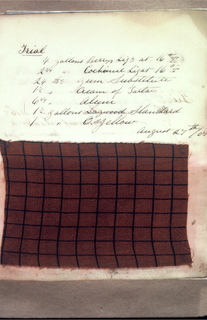 Trial
4 gallons Berry Liqr at 16
2 " Cochineal Liqr at 16
24 lbs Gum Substitute
1½ " Cream of Tartar
6 " Alum
1½ gallons Logwood Standard
1 " Yellow
August 27th